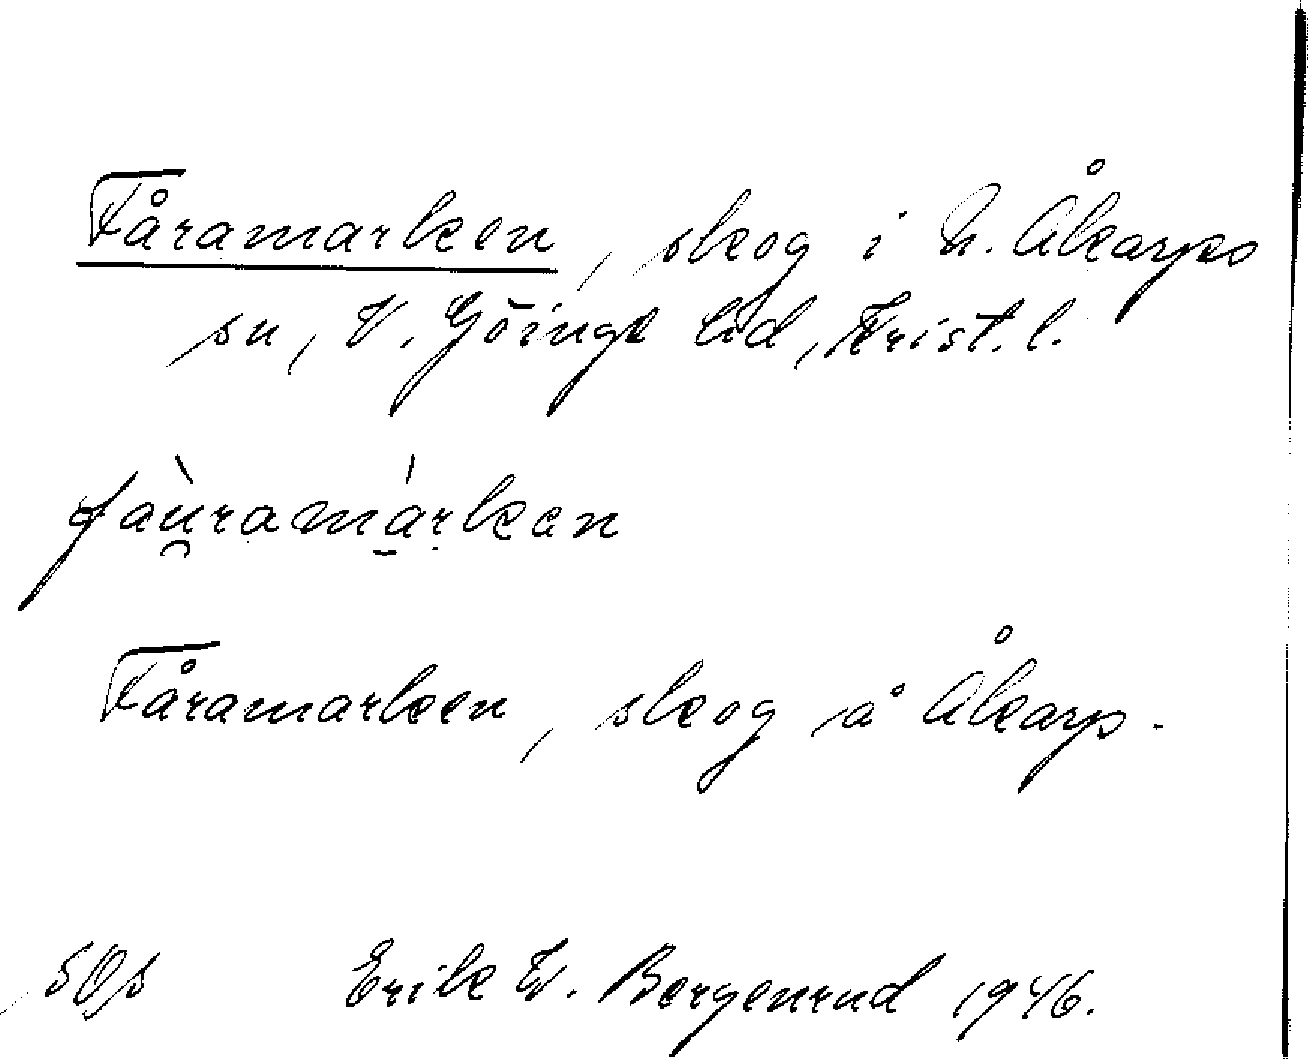 Fåramarken, skog i N. Åkarps
sn, V. Göinge hd, Krist. l.
fàu̯ramá̠rkan
Fåramarken, skog å Åkarp.
Erik W. Bergenrud 1946.